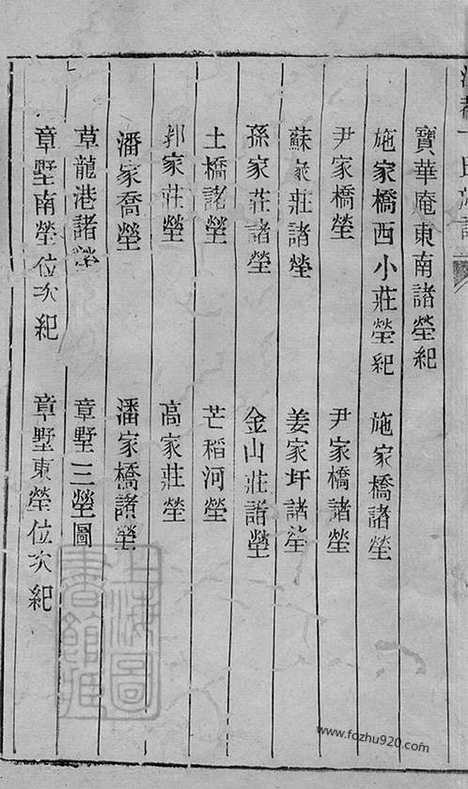 寶華庵東南諸塋紀
施家橋西小莊塋紀　施家橋諸塋
尹家橋塋　尹家橋諸塋
蘇家莊諸塋　姜家圩諸塋
孫家莊諸塋　金山莊諸塋
土橋諸塋　芒稻河塋
郭家莊塋　高家莊塋
潘家喬塋　潘家橋諸塋
草龍港諸塋　章墅三塋圖
章墅南塋位次紀　章墅東塋位次紀
上海圖書館藏
www.fozhu920.com